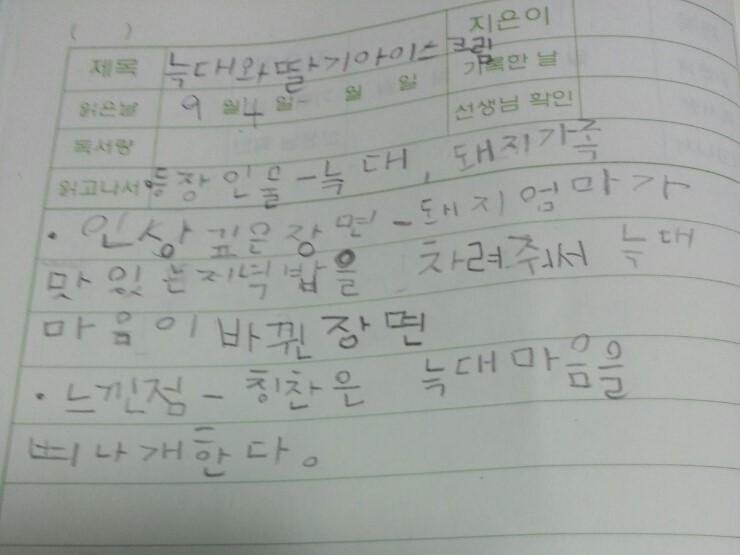 (   )
제목 늑대와딸기아이스크림 지은이
읽은날 9월4일~ 월 일 기록한 날
독서량 선생님 확인
읽고나서 •등장인물-늑대, 돼지가족
• 인상깊은장면-돼지엄마가
맛있는저녁밥을 차려줘서 늑대
마음이바뀐장면
• 느낀점- 칭찬은 늑대마음을
삐나개한다。